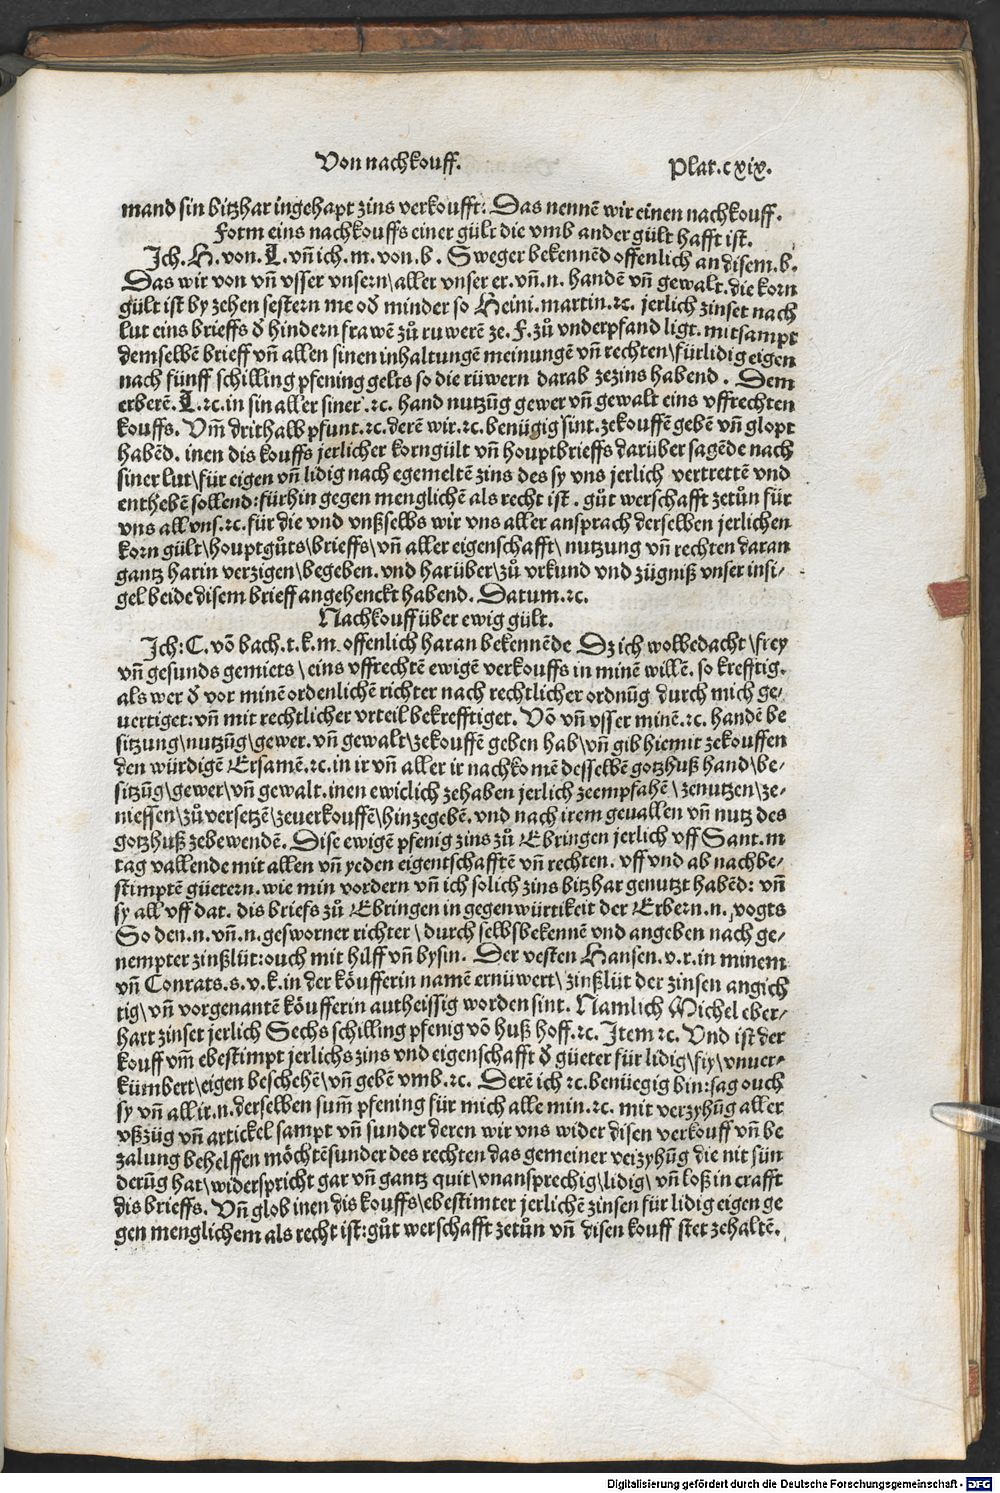 Von nachkouff.
Plat.cxix.
mand sin bitzhar ingehapt zins verkoufft: Das nennē wir einen nachkouff.
Form eins nachkouffs einer gült die vmb ander gült hafft ist.
Ich. H. von. L. vn̄ ich. m. von. b. Sweger bekennēd offenlich an disem. b.
Das wir von vn̄ vsser vnsern\ aller vnser er. vn̄. n. handē vn̄ gewalt. die korn
gült ist by zehen sestern me od̄ minder so Heini. martin. ⁊c. jerlich zinset nach
lut eins brieffs d̄ hindern frawē zů ruwerē ze. F. zů vnderpfand ligt. mitsampt
demselbē brieff vn̄ allen sinen inhaltungē meinungē vn̄ rechten\ fürlidig eigen
nach fünff schilling pfening gelts so die rüwern darab zezins habend. Dem
erberē. L. ⁊c. in sin aller siner. ⁊c. hand nutzūg gewer vn̄ gewalt eins vffrechten
kouffs. Vm̄ drithalb pfunt. ⁊c. derē wir. ⁊c. benügig sint. zekouffē gebē vn̄ glopt
habēd. inen dis kouffs jerlicher korngült vn̄ houptbrieffs darüber sagēde nach
siner lut\ für eigen vn̄ lidig nach egemeltē zins des sy vns jerlich vertrettē vnd
enthebē sollend: fürhin gegen menglichē als recht ist. gůt werschafft zetůn für
vns all vns. ⁊c. für die vnd vnßselbs wir vns aller ansprach derselben jerlichen
korn gült\ houptgůts\ brieffs\ vn̄ aller eigenschafft\ nutzung vn̄ rechten daran
gantz harin verzigen\ begeben. vnd harüber\ zů vrkund vnd zügniß vnser insi/
gel beide disem brieff angehenckt habend. Datum. ⁊c.
Nachkouff über ewig gült.
Ich: C. vō bach. t. k. m. offenlich haran bekennēde Dz ich wolbedacht\ frey
vn̄ gesunds gemiets\ eins vffrechtē ewigē verkouffs in minē willē. so krefftig.
als wer d̄ vor minē ordenlichē richter nach rechtlicher ordnūg durch mich ge/
uertiget: vn̄ mit rechtlicher vrteil bekrefftiget. Vō vn̄ vsser minē. ⁊c. handē be
sitzung\ nutzūg\ gewer. vn̄ gewalt\ zekouffē geben hab\ vn̄ gib hiemit zekouffen
den würdigē Ersamē. ⁊c. in ir vn̄ aller ir nachkomē desselbē gotzhuß hand\ be/
sitzūg\ gewer\ vn̄ gewalt. inen ewiclich zehaben jerlich zeempfahē\ zenutzen\ ze/
niessen\ zů versetzē\ zeuerkouffē\ hinzegebē. vnd nach irem geuallen vn̄ nutz des
gotzhuß zebewendē. Dise ewigē pfenig zins zů Ebringen jerlich vff Sant. m
tag vallende mit allen vn̄ yeden eigentschafftē vn̄ rechten. vff vnd ab nachbe/
stimptē güetern. wie min vordern vn̄ ich solich zins bitzhar genutzt habēd: vn̄
sy all vff dat. dis briefs zů Ebringen in gegenwürtikeit der Erbern. n. vogts
So den. n. vn̄. n. gesworner richter\ durch selbsbekennē vnd angeben nach ge/
nempter zinßlüt: ouch mit hilff vn̄ bysin. Der vesten Hansen. v. r. in minem
vn̄ Conrats. s. v. k. in der köufferin namē ernüwert\ zinßlüt der zinsen angich
tig\ vn̄ vorgenantē köufferin autheissig worden sint. Namlich Michel eber/
hart zinset jerlich Sechs schilling pfenig vō huß hoff. ⁊c. Item ⁊c. Vnd ist der
kouff vm̄ ebestimpt jerlichs zins vnd eigenschafft d̄ güeter für lidig\ fry\ vnuer/
kümbert\ eigen beschehē\ vn̄ gebē vmb. ⁊c. Derē ich ⁊c. benüegig bin: sag ouch
sy vn̄ all ir. n. derselben sum̄ pfening für mich alle min. ⁊c. mit verzyhūg aller
vßzüg vn̄ artickel sampt vn̄ sunder deren wir vns wider disen verkouff vn̄ be
zalung behelffen möchtē sunder des rechten das gemeiner verzyhūg die nit sün
derūg hat\ widerspricht gar vn̄ gantz quit\ vnansprechig\ lidig\ vn̄ loß in crafft
dis brieffs. Vn̄ glob inen dis kouffs\ ebestimter jerlichē zinsen für lidig eigen ge
gen menglichem als recht ist: gůt werschafft zetůn vn̄ disen kouff stet zehaltē.
Digitalisierung gefördert durch die Deutsche Forschungsgemeinschaft - DFG